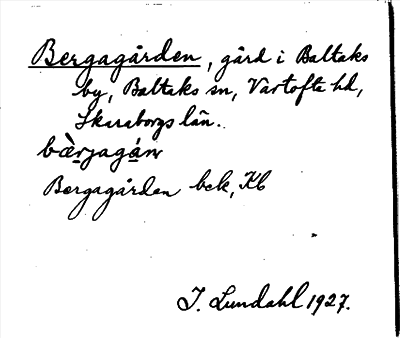 Bergagården, gård i Baltaks
by, Baltaks sn, Vartofta hd,
Skaraborgs län.
bæ̀rjagán
Bergagården bek, Kb
I. Lundahl 1927.